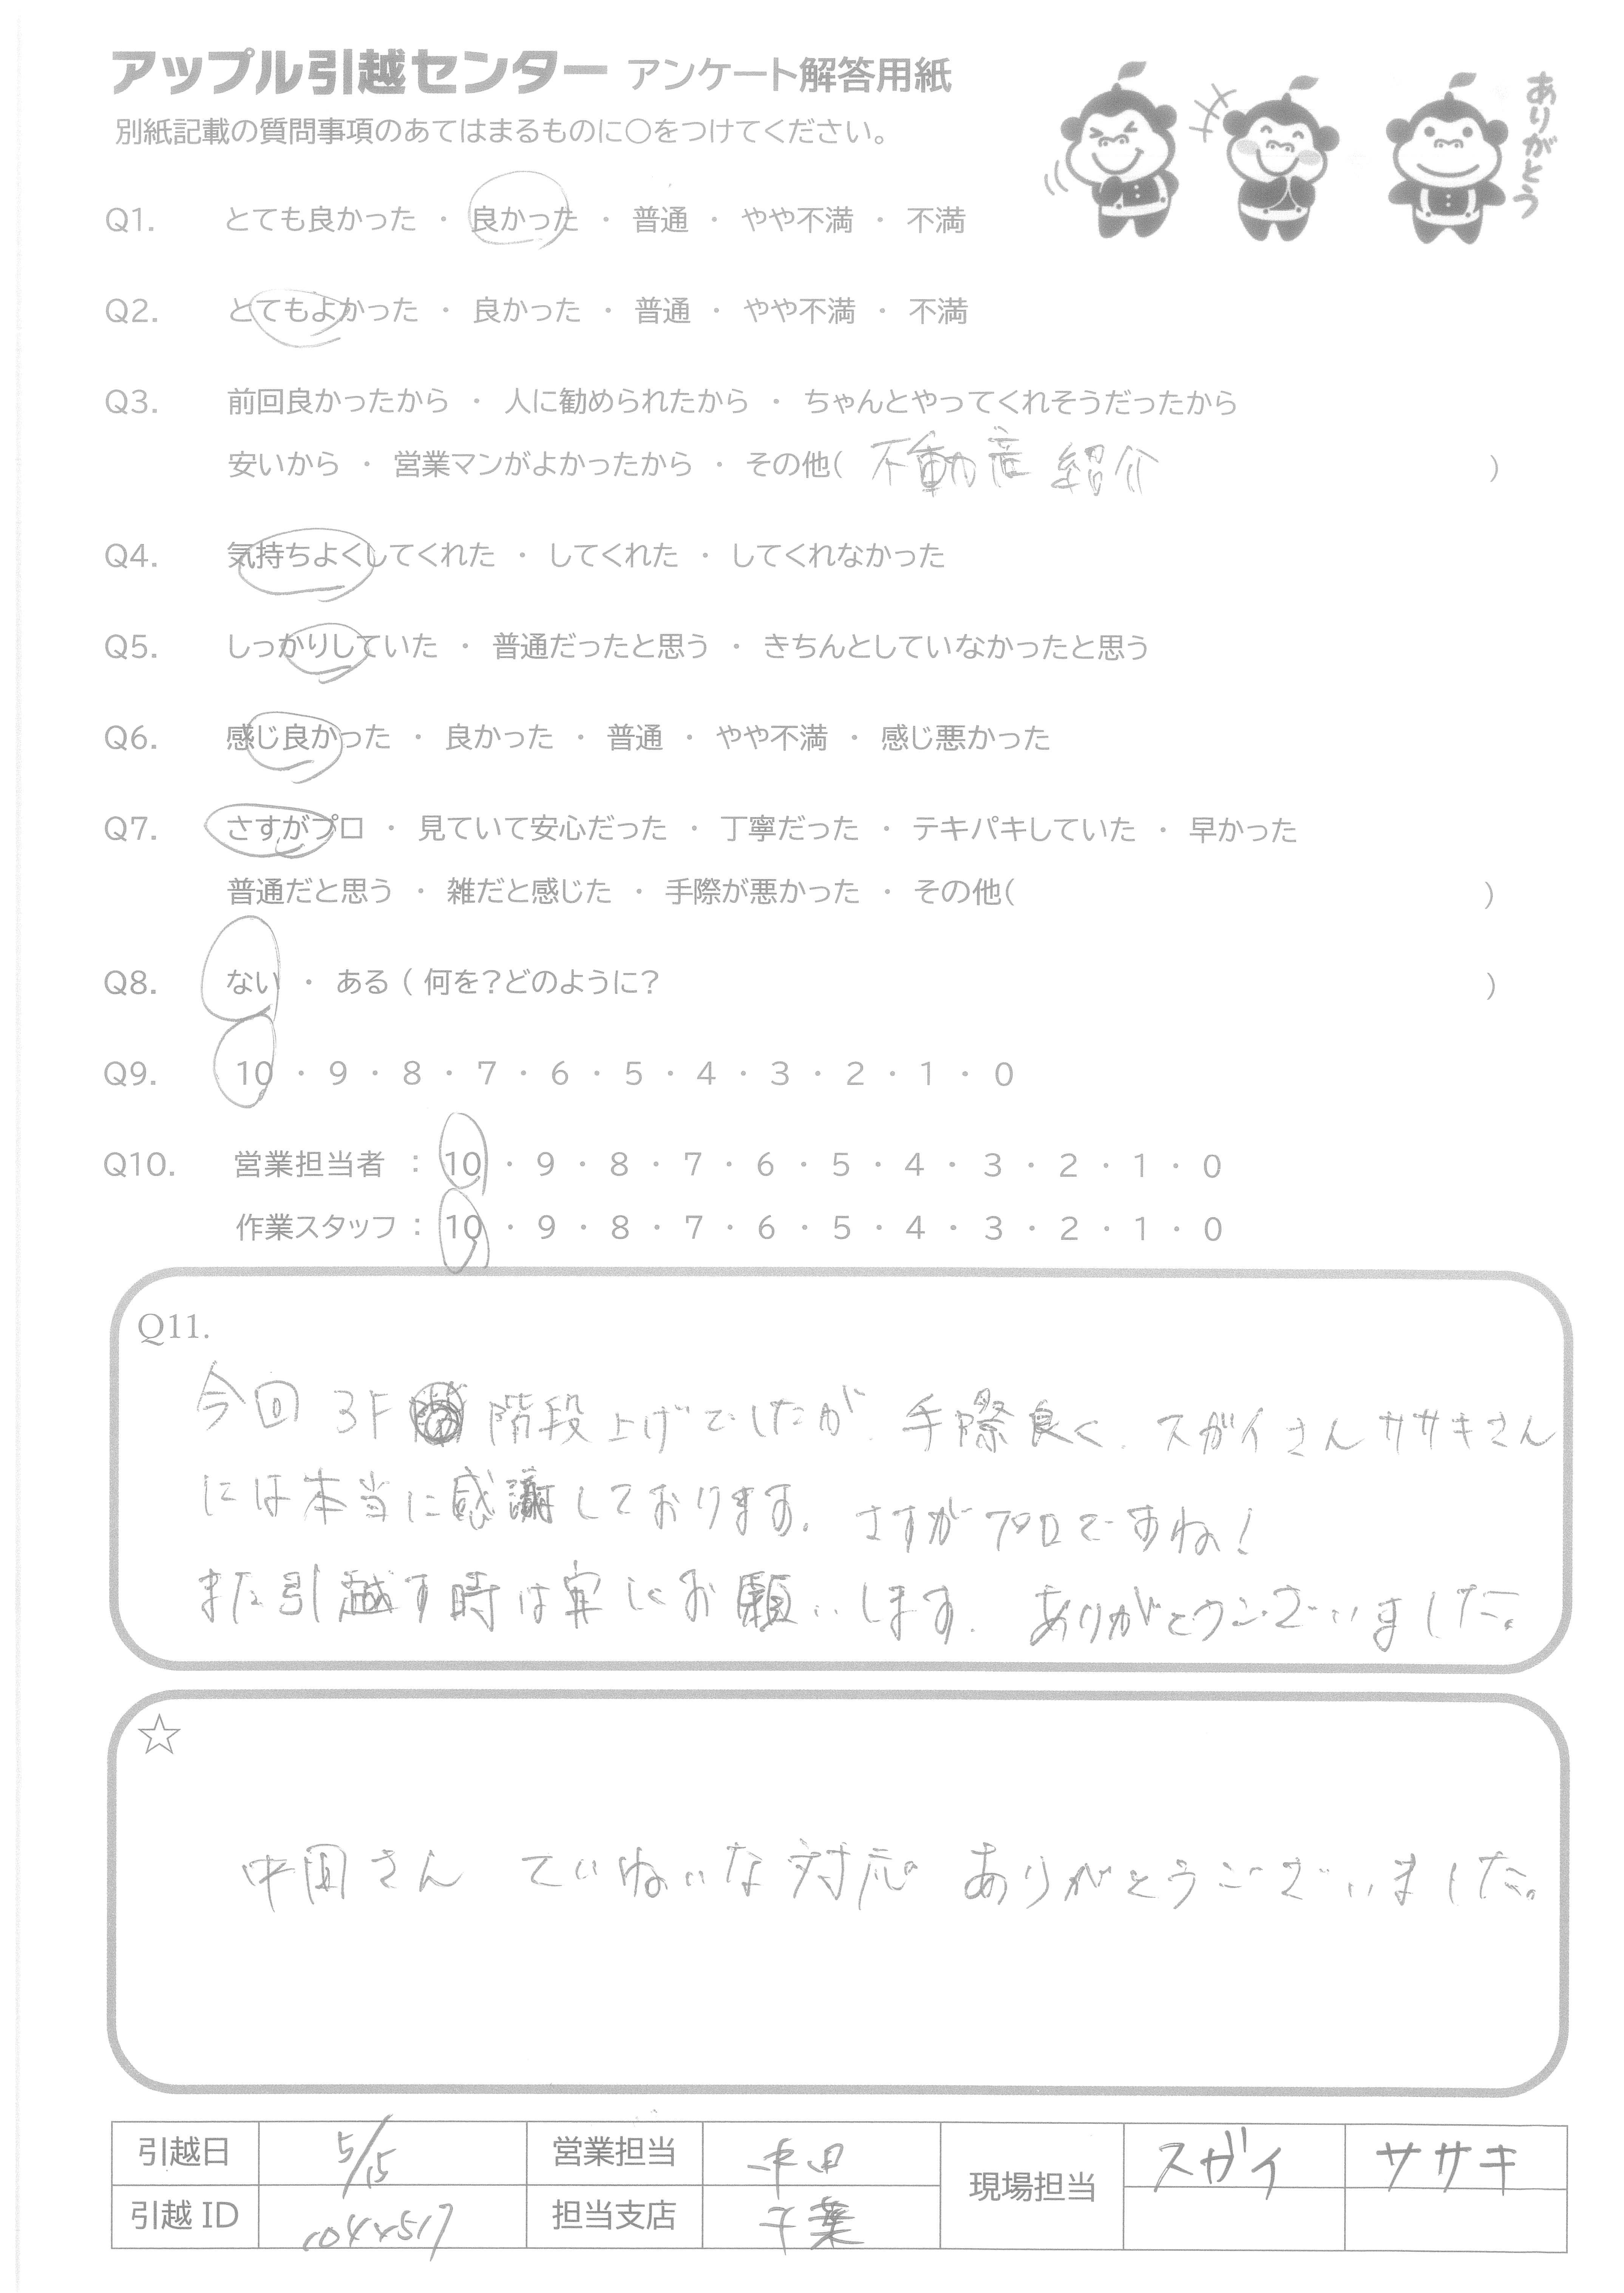 アップル引越センター アンケート解答用紙
ありがとう
別紙記載の質問事項のあてはまるものに○をつけてください。
Q1. とても良かった ・ 良かった ・ 普通 ・ やや不満 ・ 不満
Q2. とてもよかった ・ 良かった ・ 普通 ・ やや不満 ・ 不満
Q3. 前回良かったから ・ 人に勧められたから ・ ちゃんとやってくれそうだったから
安いから ・ 営業マンがよかったから ・ その他( 不動産 紹介 )
Q4. 気持ちよくしてくれた ・ してくれた ・ してくれなかった
Q5. しっかりしていた ・ 普通だったと思う ・ きちんとしていなかったと思う
Q6. 感じ良かった ・ 良かった ・ 普通 ・ やや不満 ・ 感じ悪かった
Q7. さすがプロ ・ 見ていて安心だった ・ 丁寧だった ・ テキパキしていた ・ 早かった
普通だと思う ・ 雑だと感じた ・ 手際が悪かった ・ その他( )
Q8. ない ・ ある ( 何を?どのように? )
Q9. 10 ・ 9 ・ 8 ・ 7 ・ 6 ・ 5 ・ 4 ・ 3 ・ 2 ・ 1 ・ 0
Q10. 営業担当者 : 10 ・ 9 ・ 8 ・ 7 ・ 6 ・ 5 ・ 4 ・ 3 ・ 2 ・ 1 ・ 0
作業スタッフ : 10 ・ 9 ・ 8 ・ 7 ・ 6 ・ 5 ・ 4 ・ 3 ・ 2 ・ 1 ・ 0
Q11.
今回 3F 階段上げでしたが、手際良く、スガイさん ササキさん
には本当に感謝しております。さすがプロですね!
また引越す時は にお願いします。ありがとうございました。
☆
さん ていねいな対応 ありがとうございました。
引越日 5/15 営業担当 現場担当 スガイ ササキ
引越 ID 担当支店 千葉